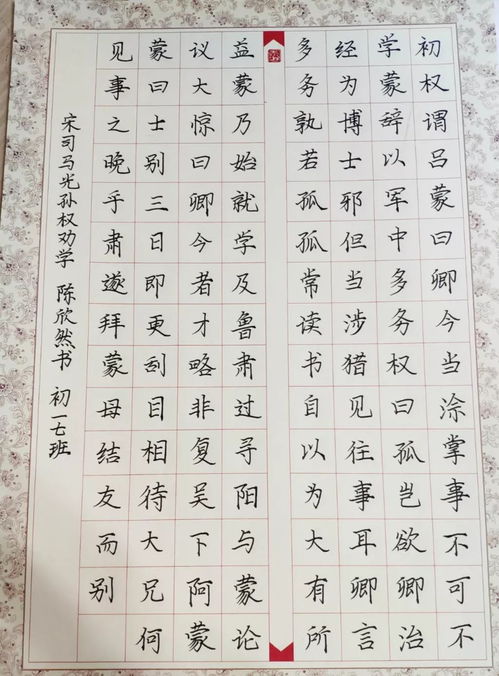 初权谓吕蒙曰卿今当涂掌事不可不
学蒙辞以军中多务权曰孤岂欲卿治
经为博士邪但当涉猎见往事耳卿言
多务孰若孤孤常读书自以为大有所
益蒙乃始就学及鲁肃过寻阳与蒙论
议大惊曰卿今者才略非复吴下阿蒙
蒙曰士别三日即更刮目相待大兄何
见事之晚乎肃遂拜蒙母结友而别
宋司马光孙权劝学 陈欣然书 初一七班